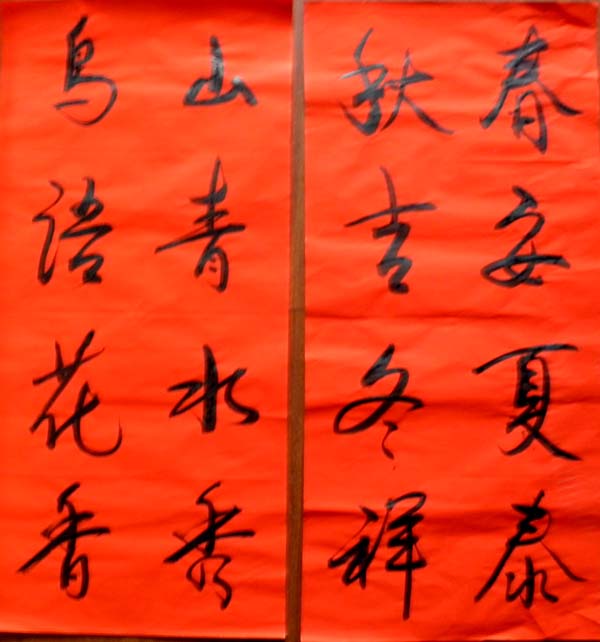 春安夏泰
秋吉冬祥
山青水秀
鸟语花香